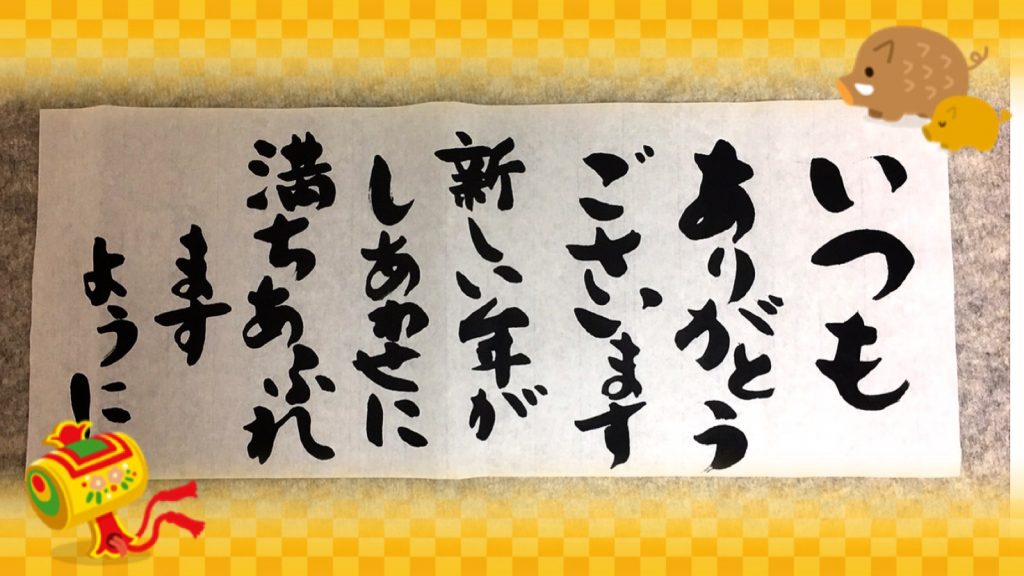 いつも
ありがとう
ごさいます
新しい年が
しあわせに
満ちあふれ
ます
ように